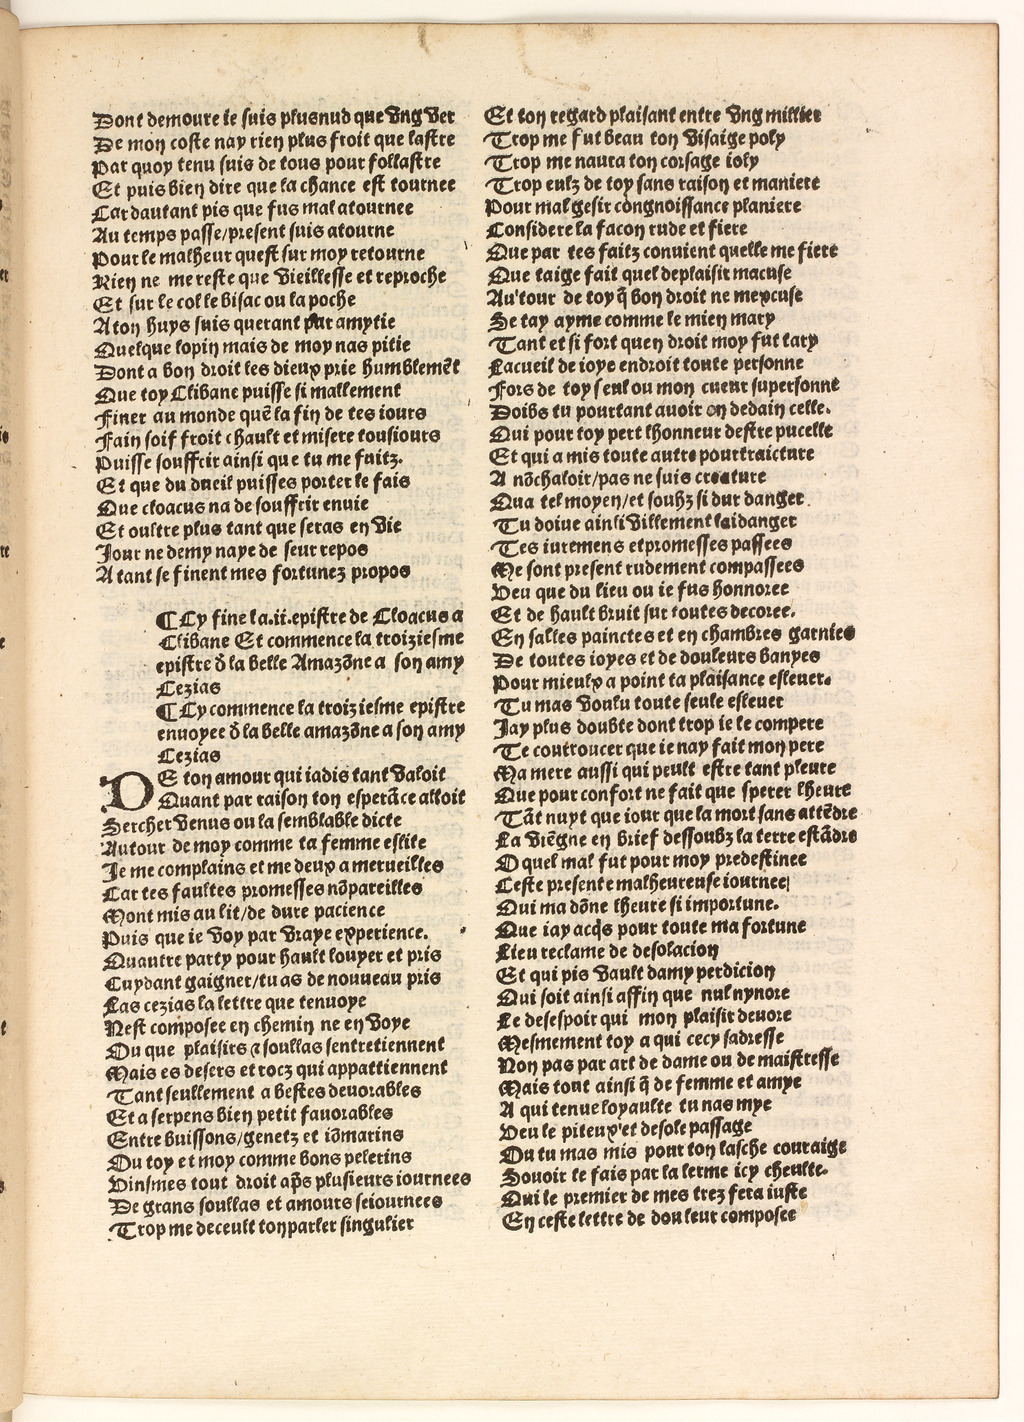 Dont demoure ie suis plusnud que vng ver
De mon coste nay rien plus froit que lastre
Par quoy tenu suis de tous pour follastre
Et puis bien dire que la chance est tournee
Car dautant pis que fus mal atournee
Au temps passe/present suis atourne
Pour le malheur quest sur moy retourne
Rien ne me reste que vieillesse et reproche
Et sur le col le bisac ou la poche
A ton huys suis querant par amytie
Quelque lopin mais de moy nas pitie
Dont a bon droit les dieux prie humblemēt
Que toy Clibane puisse si mallement
Finer au monde quē la fin de tes iours
Fain soif froit chault et misere tousiours
Puisse souffrir ainsi que tu me fuitz.
Et que du dueil puisses porter le fais
Que cloacus na de souffrir enuie
Et oultre plus tant que seras en vie
Iour ne demy naye de seur repos
A tant se finent mes fortunez propos
¶Cy fine la.ii.epistre de Cloacus a
Clibane Et commence la troiziesme
epistre d̄ la belle Amazōne a son amy
Cezias
¶Cy commence la troiziesme epistre
enuoyee d̄ la belle amazōne a son amy
Cezias
DE ton amour qui iadis tant valoit
Quant par raison ton esperāce alloit
Sercher venus ou la semblable dicte
Autour de moy comme ta femme eslite
Ie me complains et me deux a merueilles
Car tes faultes promesses nōpareilles
Mont mis au lit/de dure pacience
Puis que ie voy par vraye experience.
Quautre party pour hault louyer et pris
Cuydant gaigner/tu as de nouueau pris
Las cezias la lettre que tenuoye
Nest composee en chemin ne en voye
Ou que plaisirs ⁊ soullas sentretiennent
Mais es desers et rocz qui appartiennent
Tant seullement a bestes deuorables
Et a serpens bien petit fauorables
Entre buissons/genetz et iōmarins
Ou toy et moy comme bons pelerins
Vinsmes tout droit ap̄s plusieurs iournees
De grans soullas et amours seiournees
Trop me deceult ton parler singulier
Et ton regard plaisant entre vng millier
Trop me fut beau ton visaige poly
Trop me naura ton corsage ioly
Trop eulz de toy sans raison et maniere
Pour mal gesir congnoissance planiere
Considere la facon rude et fiere
Que par tes faitz conuient quelle me fiere
Que taige fait quel deplaisir macuse
Autour de toy q̄ bon droit ne mexcuse
Se tay ayme comme le mien mary
Tant et si fort quen droit moy fut tary
Lacueil de ioye endroit toute personne
Fors de toy seul ou mon cueur supersonne
Doibs tu pourtant auoir en dedain celle.
Qui pour toy pert lhonneur destre pucelle
Et qui a mis toute autre pourtraicture
A nōchaloir/pas ne suis creature
Qua tel moyen/et souhz si dur danger
Tu doiue ainsi villement laidanger
Tes iuremens et promesses passees
Me sont present rudement compassees
Veu que du lieu ou ie fus honnoree
Et de hault bruit sur toutes decoree.
En salles painctes et en chambres garnies
De toutes ioyes et de douleurs banyes
Pour mieulx a point ta plaisance esleuer.
Tu mas voulu toute seule esleuer
Iay plus doubte dont trop ie le compere
Te courroucer que ie nay fait mon pere
Ma mere aussi qui peult estre tant pleure
Que pour confort ne fait que sperer lheure
Tāt nuyt que iour que la mort sans attēdre
La viēgne en brief dessoubz la terre estādre
O quel mal fut pour moy predestinee
Ceste presente malheureuse iournee
Qui ma dōne lheure si importune.
Que iay acq̄s pour toute ma fortune
Lieu reclame de desolacion
Et qui pis vault damy perdicion
Qui soit ainsi affin que nul nynore
Le desespoir qui mon plaisir deuore
Mesmement toy a qui cecy sadresse
Non pas par art de dame ou de maistresse
Mais tout ainsi q̄ de femme et amye
A qui tenue loyaulte tu nas mye
Veu le piteux et desole passage
Ou tu mas mis pour ton lasche couraige
Souoir le fais par la lerme icy cheulte.
Qui le premier de mes trez fera iuste
En ceste lettre de douleur composee